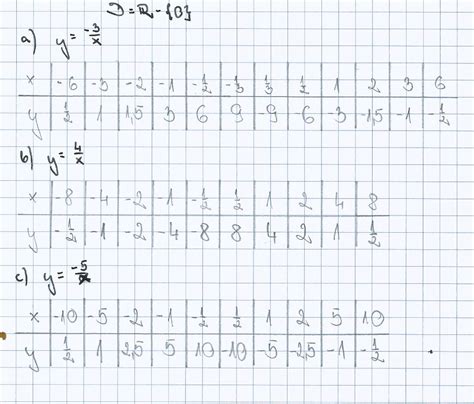 D = ℝ - {0}
a) y = -3/x
x | -6 | -3 | -2 | -1 | -1/2 | -1/3 | 1/3 | 1/2 | 1 | 2 | 3 | 6
y | 1/2 | 1 | 1,5 | 3 | 6 | 9 | -9 | -6 | -3 | -1,5 | -1 | -1/2
b) y = 4/x
x | -8 | -4 | -2 | -1 | -1/2 | 1/2 | 1 | 2 | 4 | 8
y | -1/2 | -1 | -2 | -4 | -8 | 8 | 4 | 2 | 1 | 1/2
c) y = -5/x
x | -10 | -5 | -2 | -1 | -1/2 | 1/2 | 1 | 2 | 5 | 10
y | 1/2 | 1 | 2,5 | 5 | 10 | -10 | -5 | -2,5 | -1 | -1/2